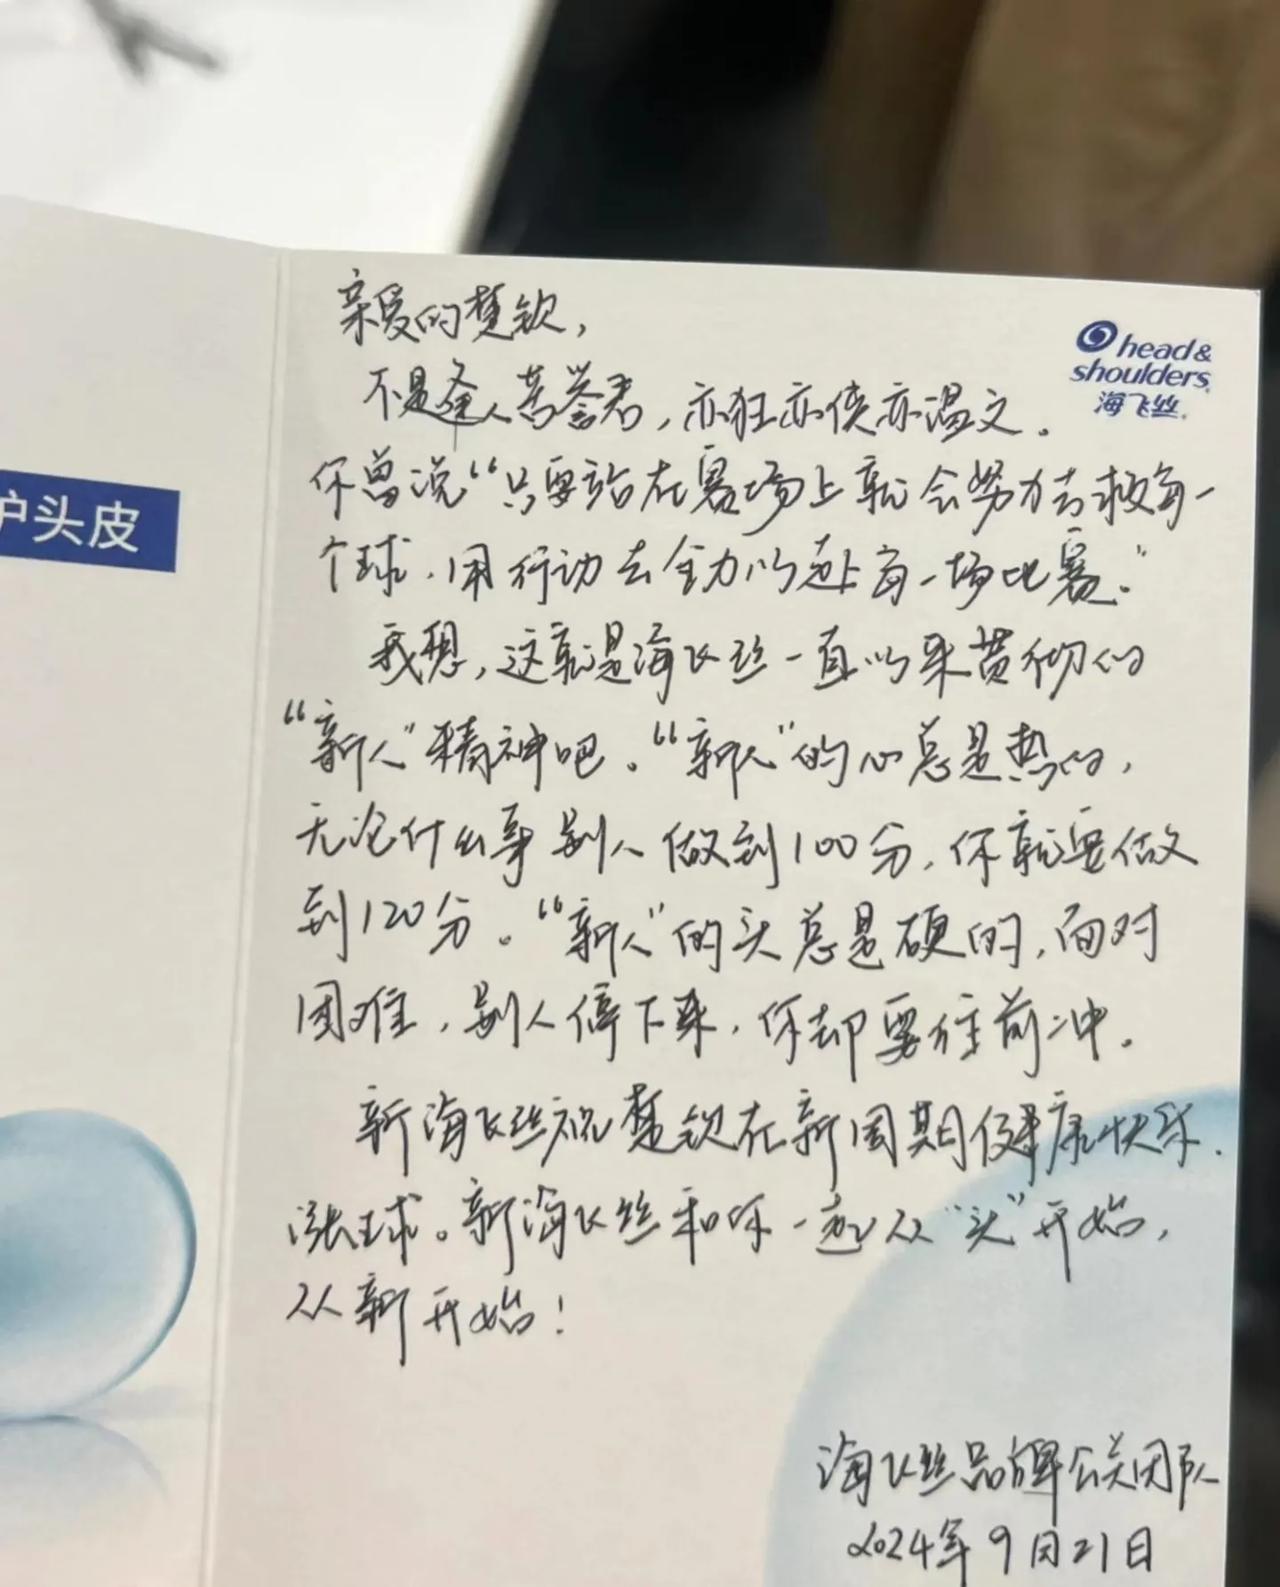 亲爱的楚钦，
head&
shoulders
海飞丝
不是逢人苦誉君，亦狂亦侠亦温文。
你曾说“只要站在赛场上就会努力去救每一
个球，用行动去全力以赴每一场比赛。”
我想，这就是海飞丝一直以来贯彻的
“新人”精神吧。“新人”的心总是热的，
无论什么事别人做到100分，你就要做
到120分。“新人”的头总是硬的，面对
困难，别人停下来，你却要往前冲。
新海飞丝祝楚钦在新周期健康快乐．
涨球。新海飞丝和你一起从“头”开始，
从新开始！
海飞丝品牌公关团队
2024年9月21日
护头皮